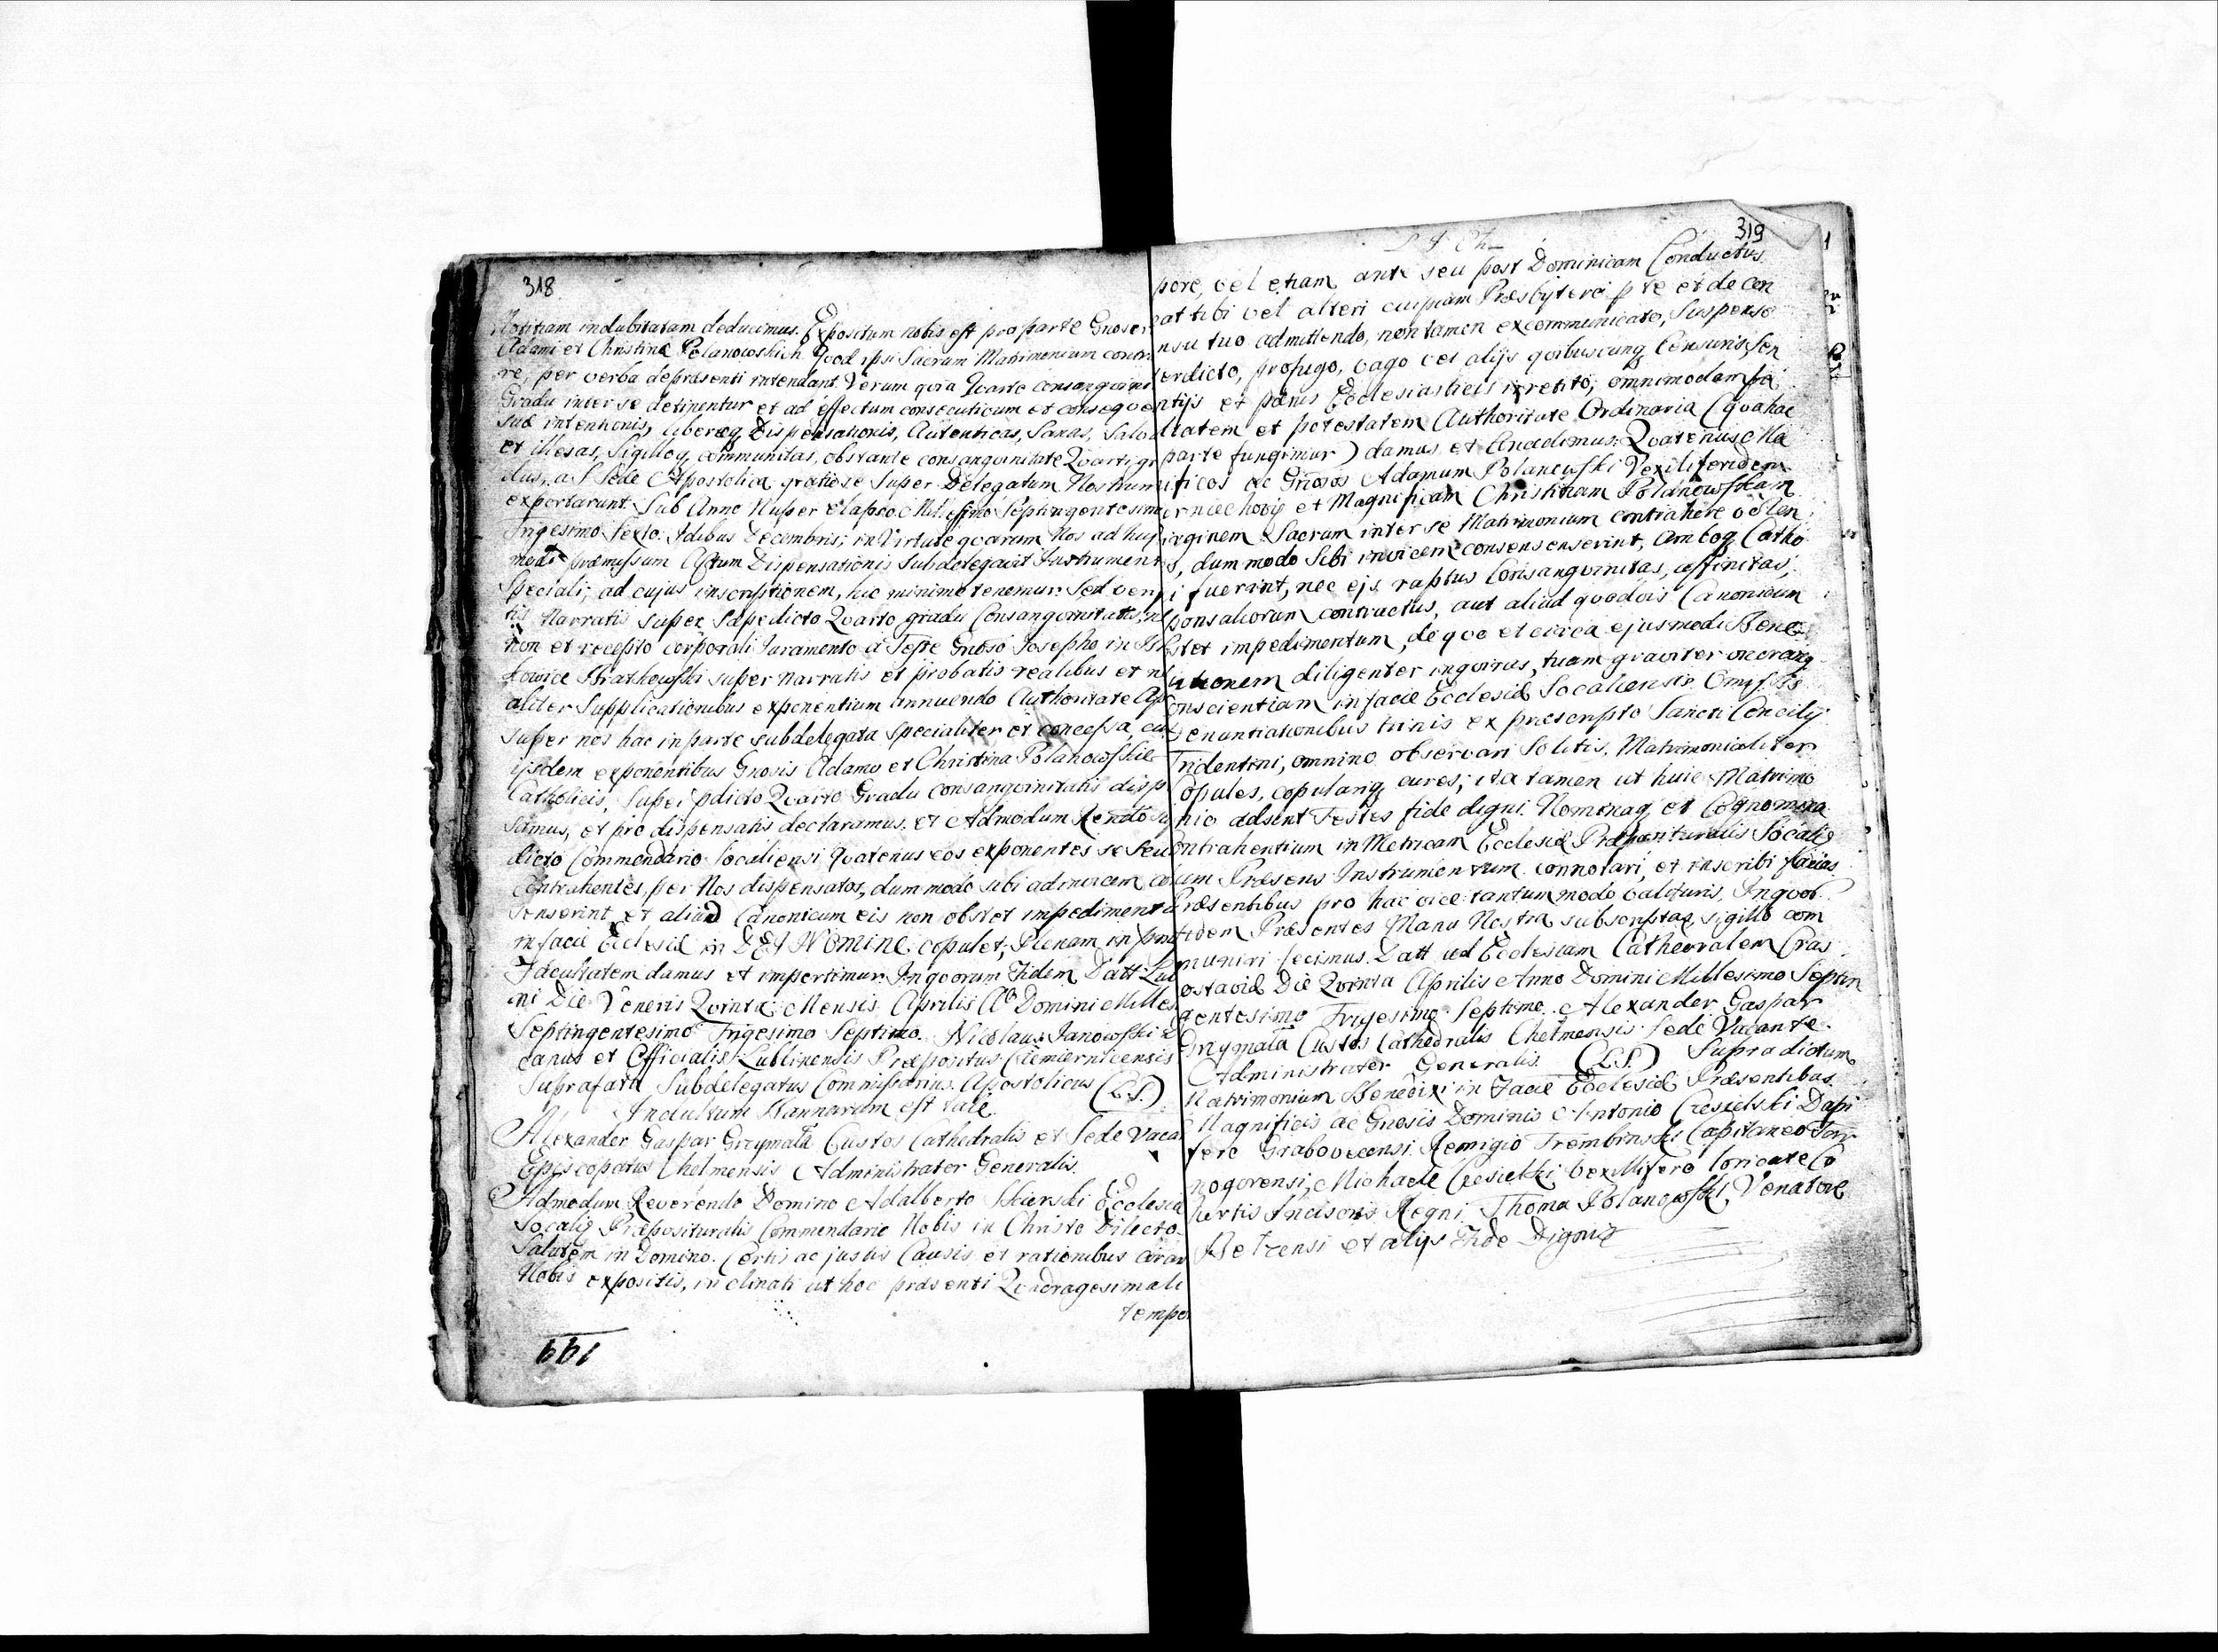 318
Notitiam indubitatam deducimus. Expositum nobis est pro parte Gnosor
Adami et Christinæ Polanowskich Quod ipsi Sacrum Matrimonium contr
re, per verba de præsenti intendant. Verum quia Quarto consanguini
Gradu inter se detinentur et ad effectum consecuticum et conseque
suæ intentionis, liberæq Dispensationis, Autenticas, Sanas, Salva
et illesas, Sigilloq communitas, obstante consanguinitate Quarti gr
dus, a S Sede Apostolica gratiose Super Delegatum Nostrum
exportarunt. Sub Anno Nuper Elapso Millessimo Septingentesim
Trigesimo Sexto. Idibus Decembris; in Virtute quarum Nos ad huj
modi præmissum Actum Dispensationis Subdelegavit Instrument
Speciali; ad cujus inscriptionem, hic minime tenemur. Sed veri
tis Narratis super Sæpedicto Quarto gradu Consanguinitatis, n
non et recepto corporali Juramento a Teste Gnoso Josepho in
Bratkowski super narratis et probatis realibus et
aliter Supplicationibus exponentium annuendo Authoritate Ap
super nos hac in parte subdelegata specialiter et concessa, cu
ijsdem exponentibus Gnosis Adamo et Christina Polanowskie
Catholicis, Super pdicto Quarto Gradu consanguinitatis disp
samus, et pro dispensatis declaramus. Et Admodum Rendo
dicto Commendario Socaliensi Quatenus eos exponentes se seu
Contrahentes, per Nos dispensatos, dum modo sibi adinvicem co
senserint et aliud Canonicum eis non obstet impediment
in facie Ecclesiæ in DEI Nomine copulet; Plenam in
Facultatem damus et impertimur. In quorum Fidem Datt Lub
ni Die Veneris Quinta Mensis Aprilis Ao Domini Milles
Septingentesimo Trigesimo Septimo. Nicolaus Janowski
canus et Officialis Lublinensis Præpositus Ciemiernicensis
Suprafata Subdelegatus Commissarius Apostolicus (L.S.)
Indultum Bannarum est tale
Alexander Gaspar Grzymała Custos Cathedralis et Sede Vaca
Episcopatus Chelmensis Administrator Generalis.
Admodum Reverendo Domino Adalberto Skierski Ecclesiæ
Socalis Præposituralis Commendario Nobis in Christo Dilecto
Salutem in Domino. Certis ac justis Causis et rationibus coram
Nobis expositis, inclinati ut hoc præsenti Quadragesimali
tempo
199
319
pore, vel etiam ante seu post Dominicam Conductus
eat tibi vel alteri cuipiam Presbytero p te et de con
nsu tuo admittendo, non tamen excommunicato, Suspenso
terdicto, profugo, vago vel alijs quibuscunq Censuris Sen
ntijs et pœnis Ecclesiasticis irretito; omnimodam fa
ltatem et potestatem Authoritate Ordinaria (qua hac
parte fungimur) damus et Concedimus. Quatenus Ma
nificos ac Gnosos Adamum Polanowski Vexiliferidem
et Magnificam Christinam Polanowskam
irginem Sacrum inter se Matrimonium contrahere volen
s, dum modo Sibi invicem consensenserint, amboq Catho
i fuerint, nec ejs raptus Consanguinitas, affinitas,
ponsaliorum contractus, aut aliud quodvis Canonicum
stet impedimentum, de quo et circa ejusmodi Bene
itionem diligenter inquiras, tuam graviter
onscientiam in facie Ecclesiæ Socaliensis. Omissis
Denuntiationibus trinis ex præscripto Sancti Concilij
Tridentini, omnino observari Solitis. Matrimonialiter
Copules, copulariq cures; ita tamen ut huic Matrimo
nio adsint Testes fide digni. Nominaq et Cognomina
ontrahentium in Metricam Ecclesiæ Præposituralis Socalis
um Præsens Instrumentum connotari, et inscribi facias
Præsentibus pro hac vice tantummodo valituris, In quor
fidem Præsentes Manu Nostra subscriptas, sigillo com
muniri fecimus. Datt ad Ecclesiam Cathedralem Cras
ostaviæ Die Quinta Aprilis Anno Domini Millesimo Septin
gentesimo Trigesimo Septimo. Alexander Gaspar
Grzymała Custos Cathedralis Chelmensis Sede Vacante
Administrator Generalis. (L.S.) Supradictum
Matrimonium Benedixi in Facie Ecclesiæ Præsentibus
Magnificis ac Gnosis Dominis Antonio Ciesielski Dapi
fero Grabovecensi Remigio Trembinski Capitaneo
nogorensi, Michaele Ciesielski Vexillifero loricate Co
hortis Incisoris Regni Thoma Polanowski, Venatore
Belzensi et alijs Fide Dignis